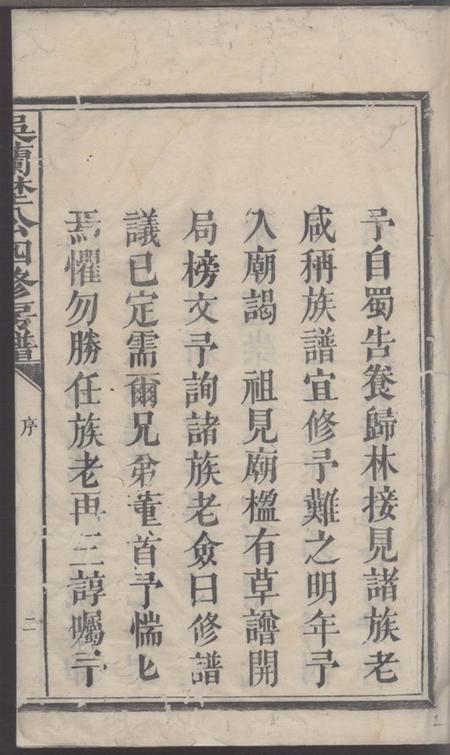 予自蜀告養歸林接見諸族老
咸稱族譜宜修予難之明年予
入廟謁 祖見廟楹有草譜開
局榜文予詢諸族老僉曰修譜
議已定需爾兄弟董首予惴惴
焉懼勿勝任族老再三諄囑予
吳蘭公四修房譜
序
二